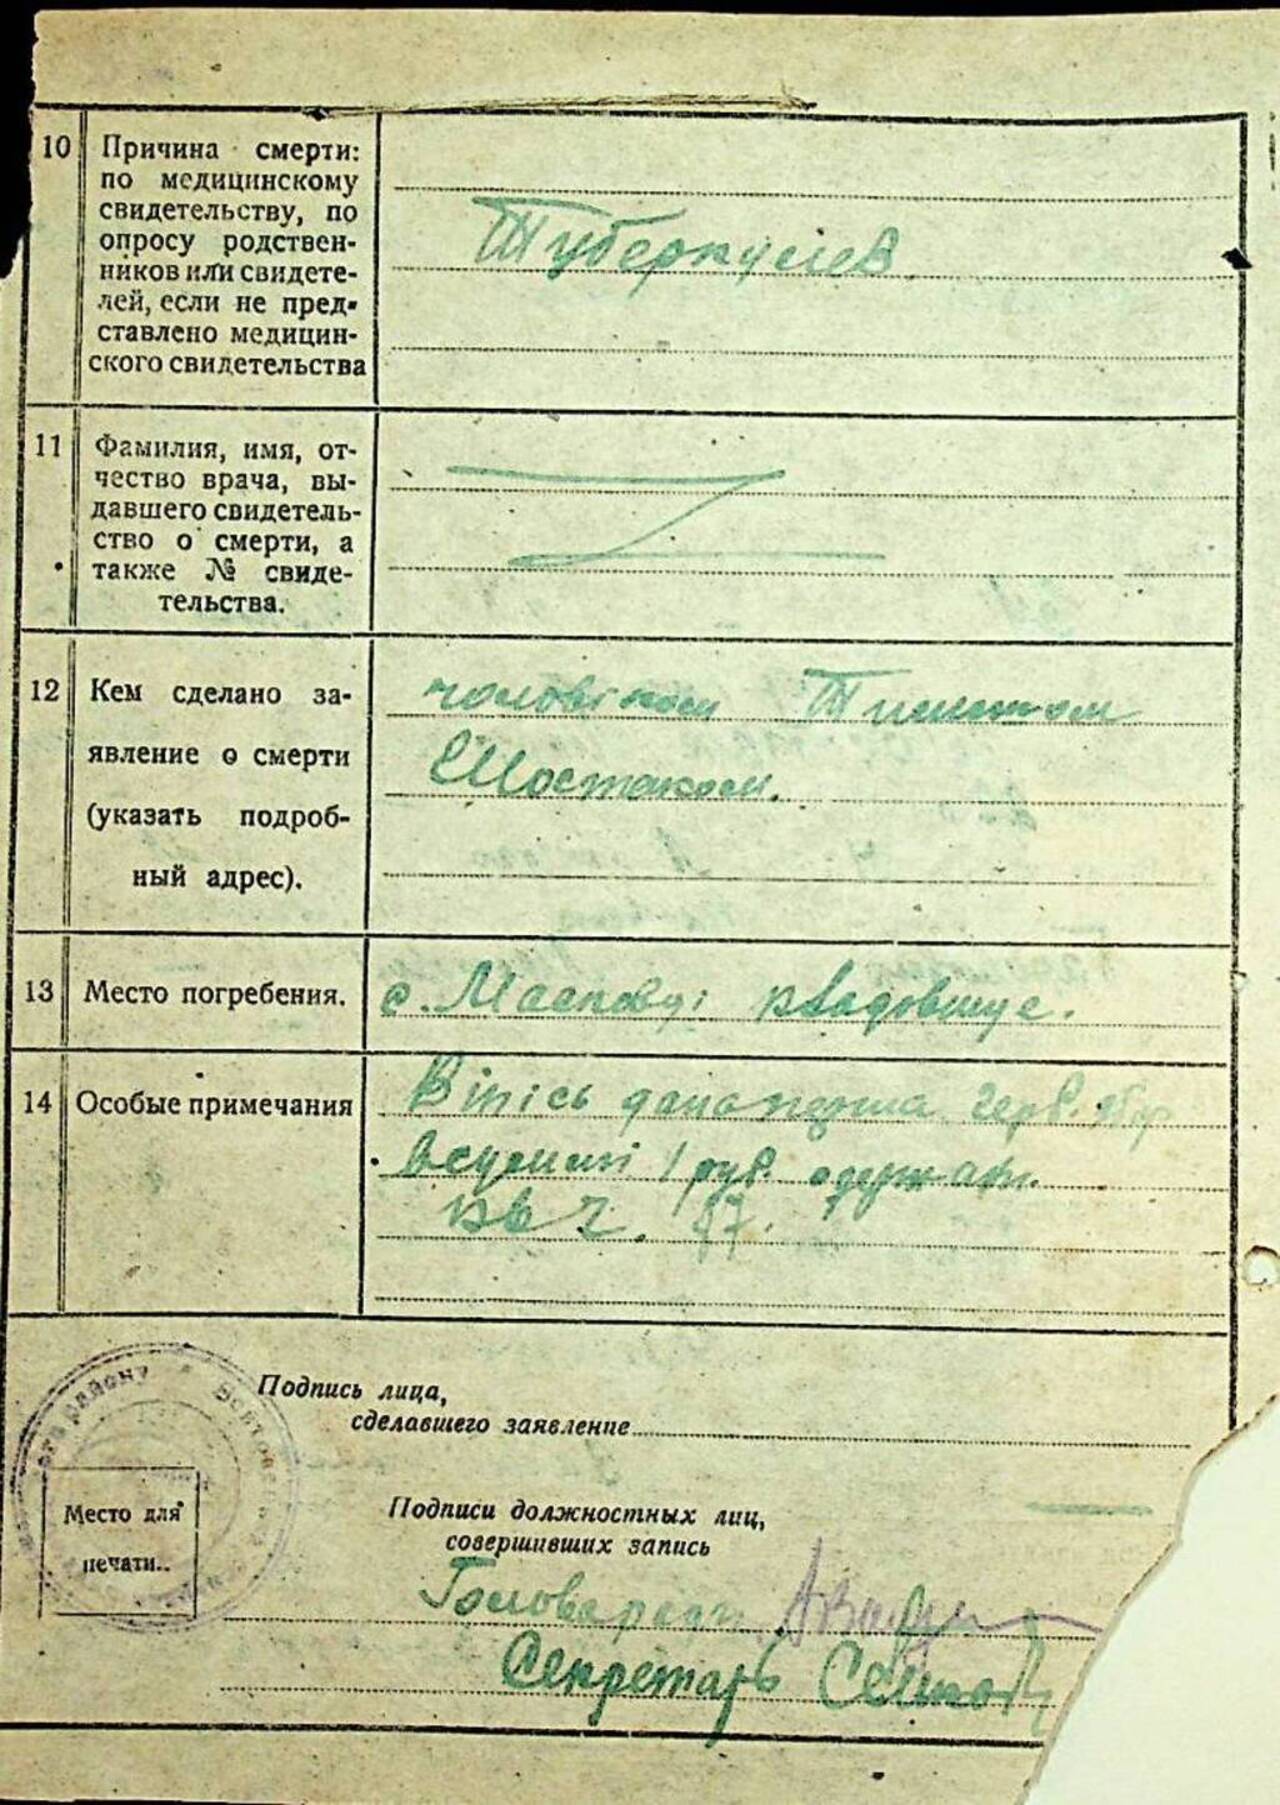 10 Причина смерти:
по медицинскому
свидетельству, по
опросу родствен-
ников или свидете-
лей, если не пред-
ставлено медицин-
ского свидетельства
Туберкульоз
11 Фамилия, имя, от-
чество врача, вы-
давшего свидетель-
ство о смерти, а
также № свиде-
тельства.
12 Кем сделано за-
явление о смерти
(указать подроб-
ный адрес).
чоловіком
Шостаком.
13 Место погребения.
с. кладовище.
14 Особые примечания
1 руб. одержат.
кв ч. 57.
району
Подпись лица,
сделавшего заявление
Место для
печати..
Подписи должностных лиц,
совершивших запись
Голова ради
Секретарь